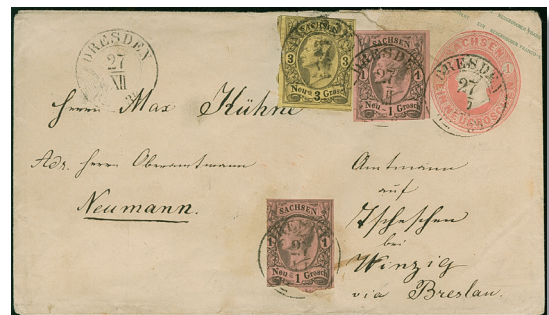 DRESDEN
27
XII
3 3
Neu- 3 Grosch
DRESDEN
27
1
Neu- 1 Grosch
SACHSEN
DRESDEN
27
Herrn Max Kühne
Adr. Herrn Oberamtmann
Neumann.
Amtmann
auf
Tscheschen
bei
Winzig
via Breslau.
SACHSEN
1 1
DRESDEN
27
Neu- 1 Grosch